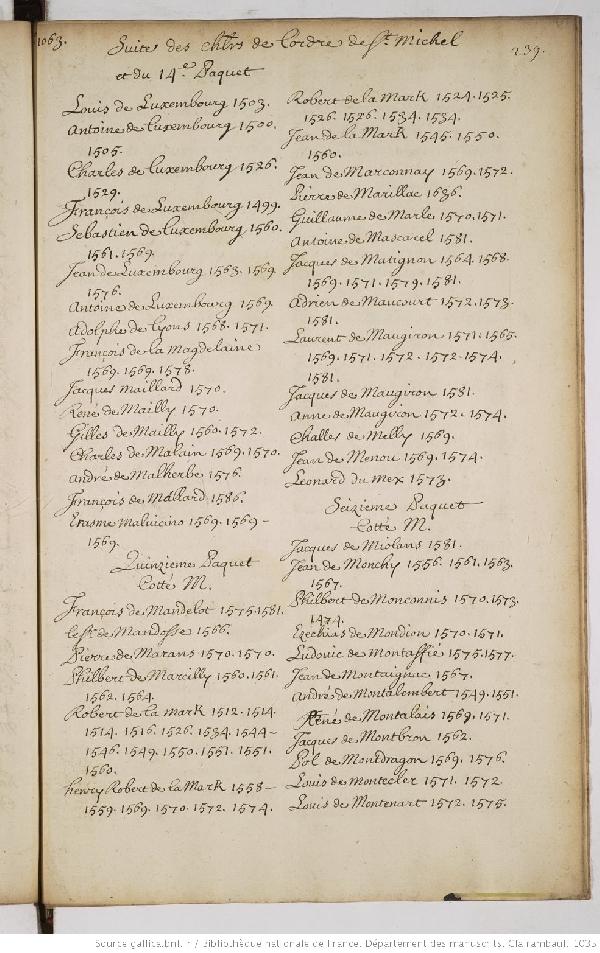 1063.
Suite des chlrs de Lordre de St. Michel
239.
et du 14.e Paquet
Louis de Luxembourg 1503.
Antoine de Luxembourg 1500.
1505.
Charles de Luxembourg 1526.
1529.
François de Luxembourg 1499.
Sebastien de Luxembourg 1560.
1561. 1569.
Jean de Luxembourg 1563. 1569
1576.
Antoine de Luxembourg 1569.
Adolphe de Lyons 1568. 1571.
François de la Magdelaine
1569. 1569. 1578.
Jacques Maillard 1570.
René de Mailly 1570.
Gilles de Mailly 1560. 1572.
Charles de Malain 1569. 1570.
André de Malherbe 1576.
François de Mallard 1586.
Erasme Malvicino 1569. 1569-
1569.
Quinzieme Paquet
Cotté M.
François de Mandelot 1575. 1581.
le Sr. de Mandosse 1566.
Pierre de Marans 1570. 1570.
Philbert de Marcilly 1560. 1561.
1562. 1564.
Robert de la Mark 1512. 1514.
1514. 1516. 1526. 1534. 1544-
1546. 1549. 1550. 1551. 1551.
1560.
henry Robert de la Mark 1558-
1559. 1569. 1570. 1572. 1574.
Robert de la Mark 1524. 1525.
1526. 1526. 1534. 1534.
Jean de la Mark 1545. 1550.
1560.
Jean de Marconnay 1569. 1572.
Pierre de Marillac 1636.
Guillaume de Marle 1570. 1571.
Antoine de Mascarel 1581.
Jacques de Matignon 1564. 1568.
1569. 1571. 1579. 1581.
Adrien de Maucourt 1572. 1573.
1581.
Laurent de Maugiron 1571. 1565.
1569. 1571. 1572. 1572. 1574.
1581.
Jacques de Maugiron 1581.
Anne de Maugiron 1572. 1574.
Challes de Melly 1569.
Jean de Menou 1569. 1574.
Leonard du Mex 1573.
Seizieme Paquet
Cotté M.
Jacques de Miolans 1581.
Jean de Monchy 1556. 1561. 1563.
1567.
Philbert de Monconnis 1570. 1573.
1474.
Ezechias de Mondion 1570. 1571.
Ludovic de Montaffié 1575. 1577.
Jean de Montaignac 1567.
André de Montalembert 1549. 1551.
René de Montalais 1569. 1571.
Jacques de Montbron 1562.
Pol de Montdragon 1569. 1576.
Louis de Montecler 1571. 1572
Louis de Montenart 1572. 1575.
Source gallica.bnf.fr / Bibliothèque nationale de France. Département des manuscrits. Clairambault 1035